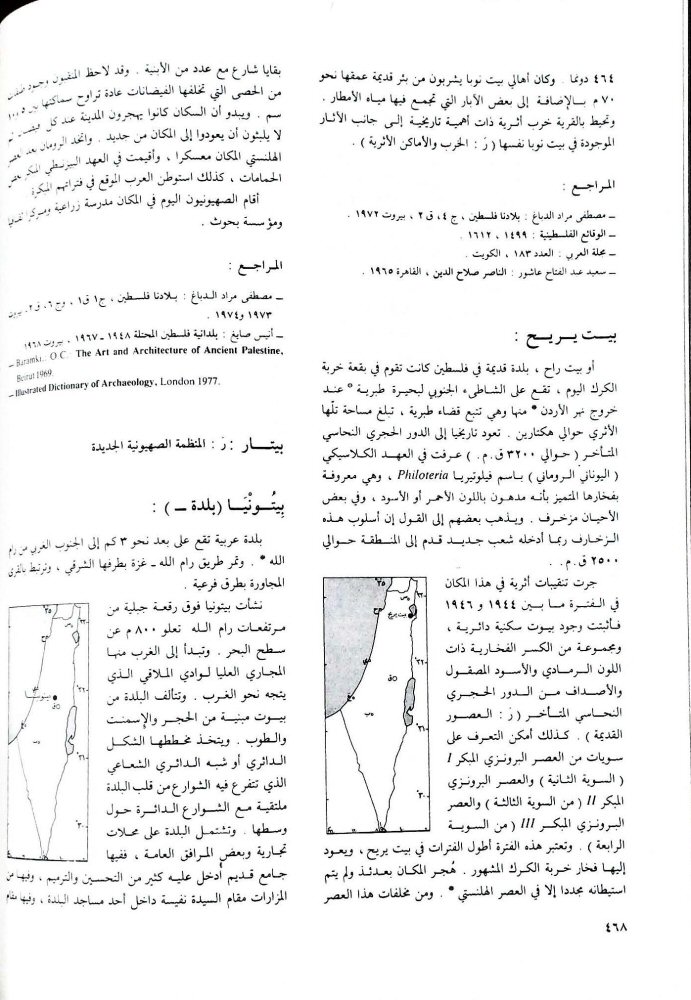 ٤٦٤ دونما . وكان أهالي بيت نوبا يشربون من بئر قديمة عمقها نحو
٧٠ م بالإضافة إلى بعض الآبار التي تجمع فيها مياه الأمطار .
وتحيط بالقرية خرب أثرية ذات أهمية تاريخية إلى جانب الآثار
الموجودة في بيت نوبا نفسها ( رَ : الخرب والأماكن الأثرية ) .
المراجع :
ــ مصطفى مراد الدباغ : بلادنا فلسطين ، ج ٤ ، ق ٢ ، بيروت ١٩٧٢ .
ــ الوقائع الفلسطينية : ١٤٩٩ ، ١٦١٢ .
ــ مجلة العربي : العدد ١٨٣ ، الكويت .
ــ سعيد عبد الفتاح عاشور : الناصر صلاح الدين ، القاهرة ١٩٦٥ .
بيت يريح :
أو بيت راح ، بلدة قديمة في فلسطين كانت تقوم في بقعة خربة
الكرك اليوم ، تقع على الشاطىء الجنوبي لبحيرة طبرية * عند
خروج نهر الأردن * منها وهي تتبع قضاء طبرية ، تبلغ مساحة تلّها
الأثري حوالي هكتارين . تعود تاريخيا إلى الدور الحجري النحاسي
المتأخر ( حوالي ٣٢٠٠ ق.م. ) عرفت في العهد الكلاسيكي
( اليوناني الروماني ) باسم فيلوتيريا Philoteria ، وهي معروفة
بفخارها المتميز بأنه مدهون باللون الأحمر أو الأسود ، وفي بعض
الأحيان مزخرف . ويذهب بعضهم إلى القول إن أسلوب هذه
الزخارف ربما أدخله شعب جديد قدم إلى المنطقة حوالي
٢٥٠٠ ق.م. .
جرت تنقيبات أثرية في هذا المكان
في الفترة ما بين ١٩٤٤ و ١٩٤٦
فأثبتت وجود بيوت سكنية دائرية ،
ومجموعة من الكسر الفخارية ذات
اللون الرمادي والأسود المصقول
والأصداف من الدور الحجري
النحاسي المتأخر ( رَ : العصور
القديمة ) . كذلك أمكن التعرف على
سويات من العصر البرونزي المبكر I
( السوية الثانية ) والعصر البرونزي
المبكر II ( من السوية الثالثة ) والعصر
البرونزي المبكر III ( من السوية
الرابعة ) . وتعتبر هذه الفترة أطول الفترات في بيت يريح ، ويعود
إليها فخار خربة الكرك المشهور . هُجر المكان بعدئذ ولم يتم
استيطانه مجددا إلا في العصر الهلنستي * . ومن مخلفات هذا العصر
بيت يريح
٤٦٨
بقايا شارع مع عدد من الأبنية . وقد لاحظ المنقبون وجود طبقات
من الحصى التي تخلفها الفيضانات عادة تراوح سماكتها بين
سم . ويبدو أن السكان كانوا يهجرون المدينة عند كل فيضان ثم
لا يلبثون أن يعودوا إلى المكان من جديد . واتخذ الرومان بعد العصر
الهلنستي المكان معسكرا ، وأقيمت في العهد البيزنطي المبكر بعض
الحمامات ، كذلك استوطن العرب الموقع في فتراتهم المبكرة
أقام الصهيونيون اليوم في المكان مدرسة زراعية ومركزا ثقافيا
ومؤسسة بحوث .
المراجع :
ــ مصطفى مراد الدباغ : بلادنا فلسطين ، ج١ ق١ ، وج ٦ ، ق٢ ، بيروت
١٩٧٣ و١٩٧٤ .
ــ أنيس صايغ : بلدانية فلسطين المحتلة ١٩٤٨ ــ ١٩٦٧ ، بيروت ١٩٦٨
– Baramki., O.C. The Art and Architecture of Ancient Palestine,
Beirut 1969.
– Illustrated Dictionary of Archaeology, London 1977.
بيتار : رَ : المنظمة الصهيونية الجديدة
بِيتُونْيَا ( بلدة ــ ) :
بلدة عربية تقع على بعد نحو ٣ كم إلى الجنوب الغربي من رام
الله * . وتمر طريق رام الله ــ غزة بطرفها الشرقي ، وترتبط بالقرى
المجاورة بطرق فرعية .
نشأت بيتونيا فوق رقعة جبلية من
مرتفعات رام الله تعلو ٨٠٠ م عن
سطح البحر . وتبدأ إلى الغرب منها
المجاري العليا لوادي الملاقي الذي
يتجه نحو الغرب . وتتألف البلدة من
بيوت مبنية من الحجر والإسمنت
والطوب . ويتخذ مخططها الشكل
الدائري أو شبه الدائري الشعاعي
الذي تتفرع فيه الشوارع من قلب البلدة
ملتقية مع الشوارع الدائرة حول
وسطها . وتشتمل البلدة على محلات
تجارية وبعض المرافق العامة ، ففيها
جامع قديم أدخل عليه كثير من التحسين والترميم ، وفيها من
المزارات مقام السيدة نفيسة داخل أحد مساجد البلدة ، وفيها مقام
بيتونيا